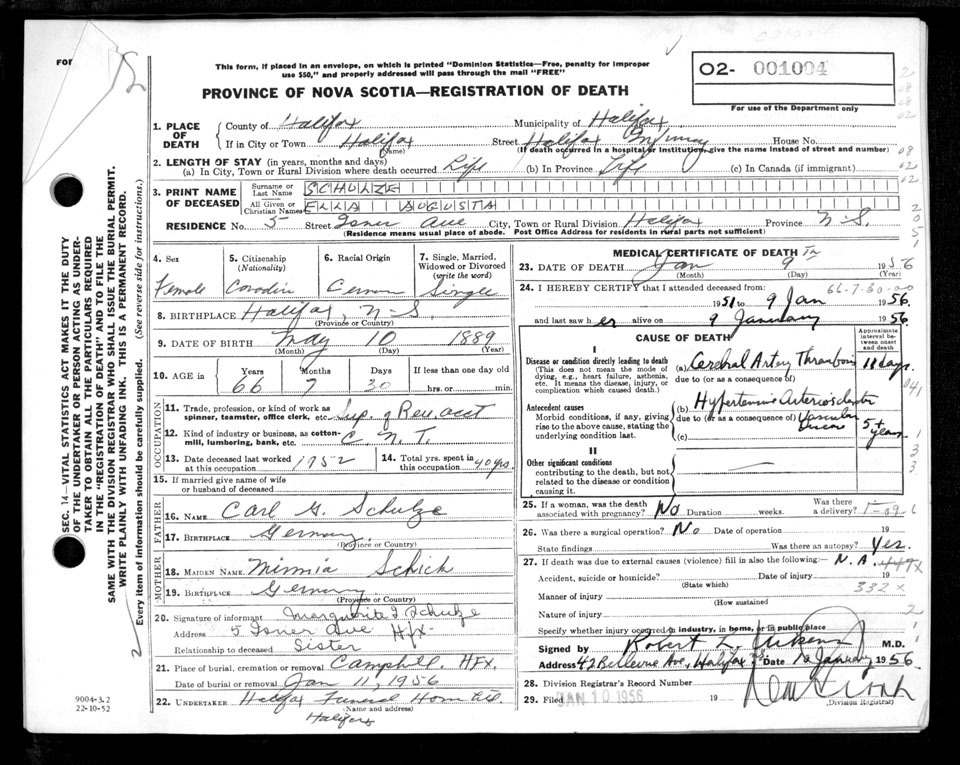 FOR
12
This form, if placed in an envelope, on which is printed "Dominion Statistics—Free, penalty for improper
use $50," and properly addressed will pass through the mail "FREE"
PROVINCE OF NOVA SCOTIA—REGISTRATION OF DEATH
O2- 001004
For use of the Department only
1. PLACE OF DEATH
County of Halifax Municipality of Halifax
If in City or Town Halifax Street Halifax Infirmary House No.
(Name) (If death occurred in a hospital or institution, give the name instead of street and number)
2. LENGTH OF STAY (in years, months and days)
(a) In City, Town or Rural Division where death occurred Life (b) In Province Life (c) In Canada (if immigrant)
3. PRINT NAME OF DECEASED
Surname or Last Name SCHULZE
All Given or Christian Names ELLA AUGUSTA
RESIDENCE No. 5 Street Isner Ave City, Town or Rural Division Halifax Province N S.
(Residence means usual place of abode. Post Office Address for residents in rural parts not sufficient)
4. Sex Female
5. Citizenship (Nationality) Canadian
6. Racial Origin German
7. Single, Married, Widowed or Divorced (write the word) Single
8. BIRTHPLACE Halifax, N-S.
(Province or Country)
9. DATE OF BIRTH May 10 1889
(Month) (Day) (Year)
10. AGE in Years 66 Months 7 Days 30 If less than one day old hrs. or min.
OCCUPATION
11. Trade, profession, or kind of work as spinner, teamster, office clerk, etc. Sup. of Rev. acct
12. Kind of industry or business, as cotton-mill, lumbering, bank, etc. C. N. T.
13. Date deceased last worked at this occupation 1952
14. Total yrs. spent in this occupation 40 yrs.
15. If married give name of wife or husband of deceased
FATHER
16. NAME Carl G. Schulze
17. BIRTHPLACE Germany.
(Province or Country)
MOTHER
18. MAIDEN NAME Minnia Schick
19. BIRTHPLACE Germany
(Province or Country)
20. Signature of informant Marguerite J Schulze
Address 5 Isner Ave Hfx-
Relationship to deceased Sister
21. Place of burial, cremation or removal Camphill, HFx.
Date of burial or removal Jan 11, 1956
22. UNDERTAKER Halifax Funeral Home Ltd.
(Name and address)
Halifax
MEDICAL CERTIFICATE OF DEATH
23. DATE OF DEATH Jan 9th 1956
(Month) (Day) (Year)
24. I HEREBY CERTIFY that I attended deceased from: 66-7-30-00
1951 to 9 Jan 1956
and last saw her alive on 9 January 1956
CAUSE OF DEATH
Approximate interval between onset and death
I
Disease or condition directly leading to death
(This does not mean the mode of dying, e.g., heart failure, asthenia, etc. It means the disease, injury, or complication which caused death.)
(a) Cerebral Artery Thrombosis 18 days
due to (or as a consequence of)
Antecedent causes
Morbid conditions, if any, giving rise to the above cause, stating the underlying condition last.
(b) Hypertensive Arteriosclerotic
due to (or as a consequence of) Vascular Disease 5+ years
(c)
II
Other significant conditions
contributing to the death, but not related to the disease or condition causing it.
25. If a woman, was the death associated with pregnancy? No Duration weeks. Was there a delivery?
26. Was there a surgical operation? No Date of operation 19
State findings Was there an autopsy? Yes.
27. If death was due to external causes (violence) fill in also the following: N.A. 447x
Accident, suicide or homicide? Date of injury 19
(State which) 332 x
Manner of injury
(How sustained)
Nature of injury
Specify whether injury occurred in industry, in home, or in public place
Signed by Robert M.D.
Address 42 Bellevue Ave, Halifax Date 10 January 1956.
28. Division Registrar's Record Number
29. Filed JAN 10 1956 19
(Division Registrar)
SEC. 14—VITAL STATISTICS ACT MAKES IT THE DUTY
OF THE UNDERTAKER OR PERSON ACTING AS UNDER-
TAKER TO OBTAIN ALL THE PARTICULARS REQUIRED
IN THE "REGISTRATION OF DEATH" AND TO FILE THE
SAME WITH THE DIVISION REGISTRAR WHO SHALL ISSUE THE BURIAL PERMIT.
WRITE PLAINLY WITH UNFADING INK. THIS IS A PERMANENT RECORD.
Every item of information should be carefully supplied. (See reverse side for instructions.)
9004-3.2
22-10-52